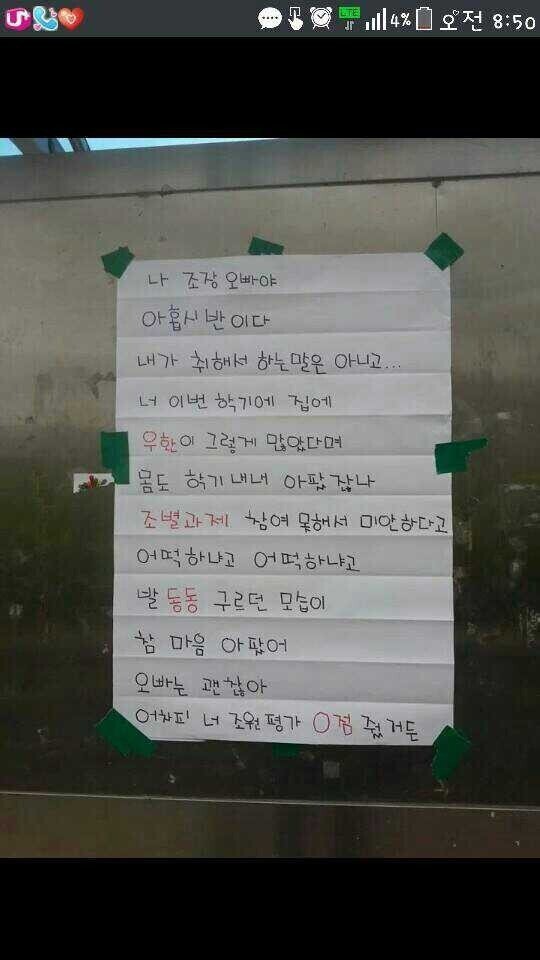 4% 오전 8:50
나 조장오빠야
아홉시반이다
내가 취해서 하는말은 아니고...
너 이번 학기에 집에
우환이 그렇게 많았다며
몸도 학기내내 아팠잖나
조별과제 참여 못해서 미안하다고
어떡하냐고 어떡하냐고
발 동동 구르던 모습이
참 마음 아팠어
오빠는 괜찮아
어차피 너 조원평가 0점 줬거든